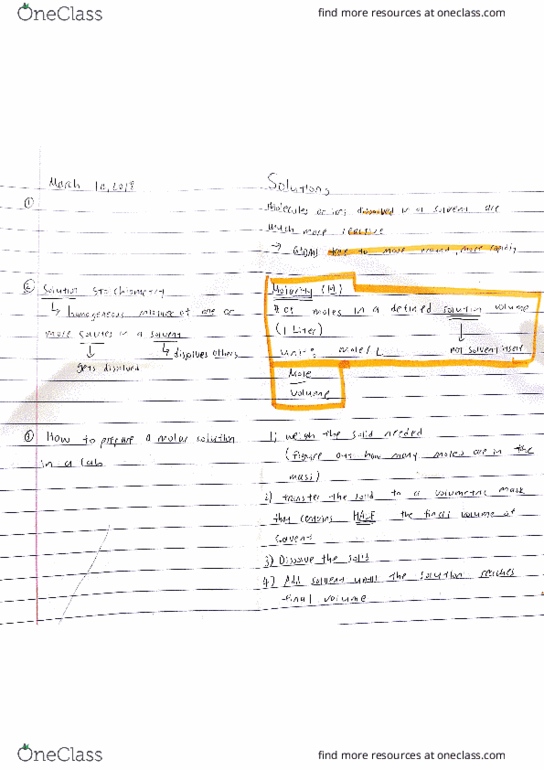 OneClass
find more resources at oneclass.com
March 10, 2018
Solutions
①
Molecules or ions dissolved in a solvent are
much more reactive
→ free to move around, more rapidly
② Solution Stoichiometry
↳ homogeneous mixture of one or
more solutes in a solvent
↓
gets dissolved
↳ dissolves others
Molarity (M)
# of moles in a defined solution volume
(1 Liter)
↓
not solvent itself
unit: moles L
Mole
Volume
③ How to prepare a molar solution
in a lab
1) weigh the solid needed
(figure out how many moles are in the
mass)
2) transfer the solid to a volumetric
that contains HALF the final volume of
solvent
3) Dissolve the solid
4) Add solvent until the solution reaches
final volume
OneClass
find more resources at oneclass.com